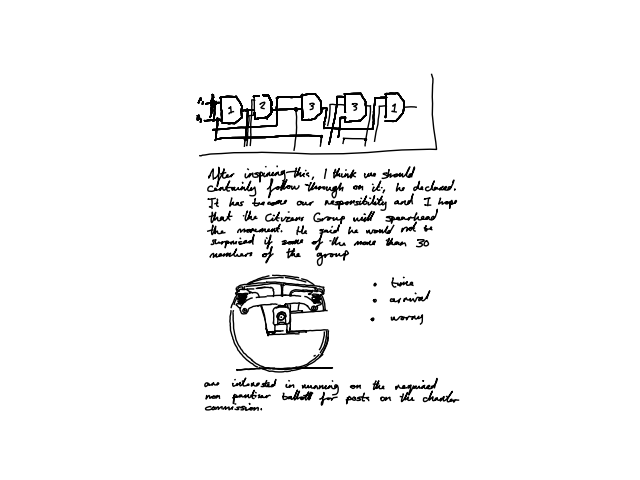 1 2 3 3 1
After inspiring this, I think we should
certainly follow through on it, he declared.
It has become our responsibility and I hope
that the Citizens Group will spearhead
the movement. He said he would not be
surprised if some of the more than 30
members of the group
time
arrival
worry
are interested in running on the required
non partizer ballott for posts on the charter
commission.